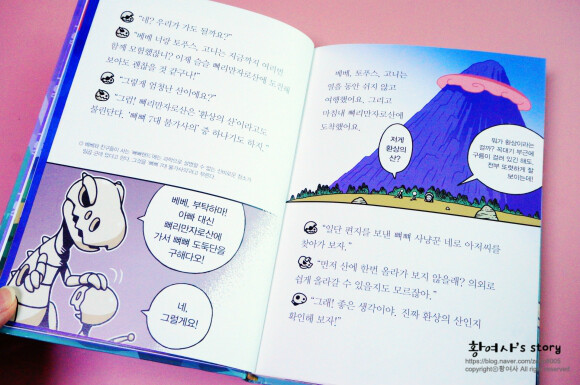 "네? 우리가 가도 될까요?"
"베베 너랑 토푸스, 고너는 지금까지 여러번
함께 모험했잖니? 이제 슬슬 뼈리만자로산에 도전해
보아도 괜찮을 것 같구나!"
"그렇게 엄청난 산이에요?"
"그럼! 뼈리만자로산은 '환상의 산'이라고도
불린단다. '뼈뼈 7대 불가사의' 중 하나기도 하지."
베베, 부탁하마!
아빠 대신
뼈리만자로산에
가서 뼈뼈 도둑단을
구해다오!
네,
그럴게요!
베베, 토푸스, 고너는
열흘 동안 쉬지 않고
여행했어요. 그리고
마침내 뼈리만자로산에
도착했어요.
저게
환상의
산?
뭐가 환상이라는
걸까? 꼭대기 부근에
구름이 걸려 있긴 해도,
전부 또렷하게 잘
보이는데!
"일단 편지를 보낸 뼈뼈 사냥꾼 네로 아저씨를
찾아가 보자."
"먼저 산에 한번 올라가 보지 않을래? 의외로
쉽게 올라갈 수 있을지도 모르잖아."
"그래! 좋은 생각이야. 진짜 환상의 산인지
확인해 보자!"
황여사's story
copyright©황여사 All rights reserved.